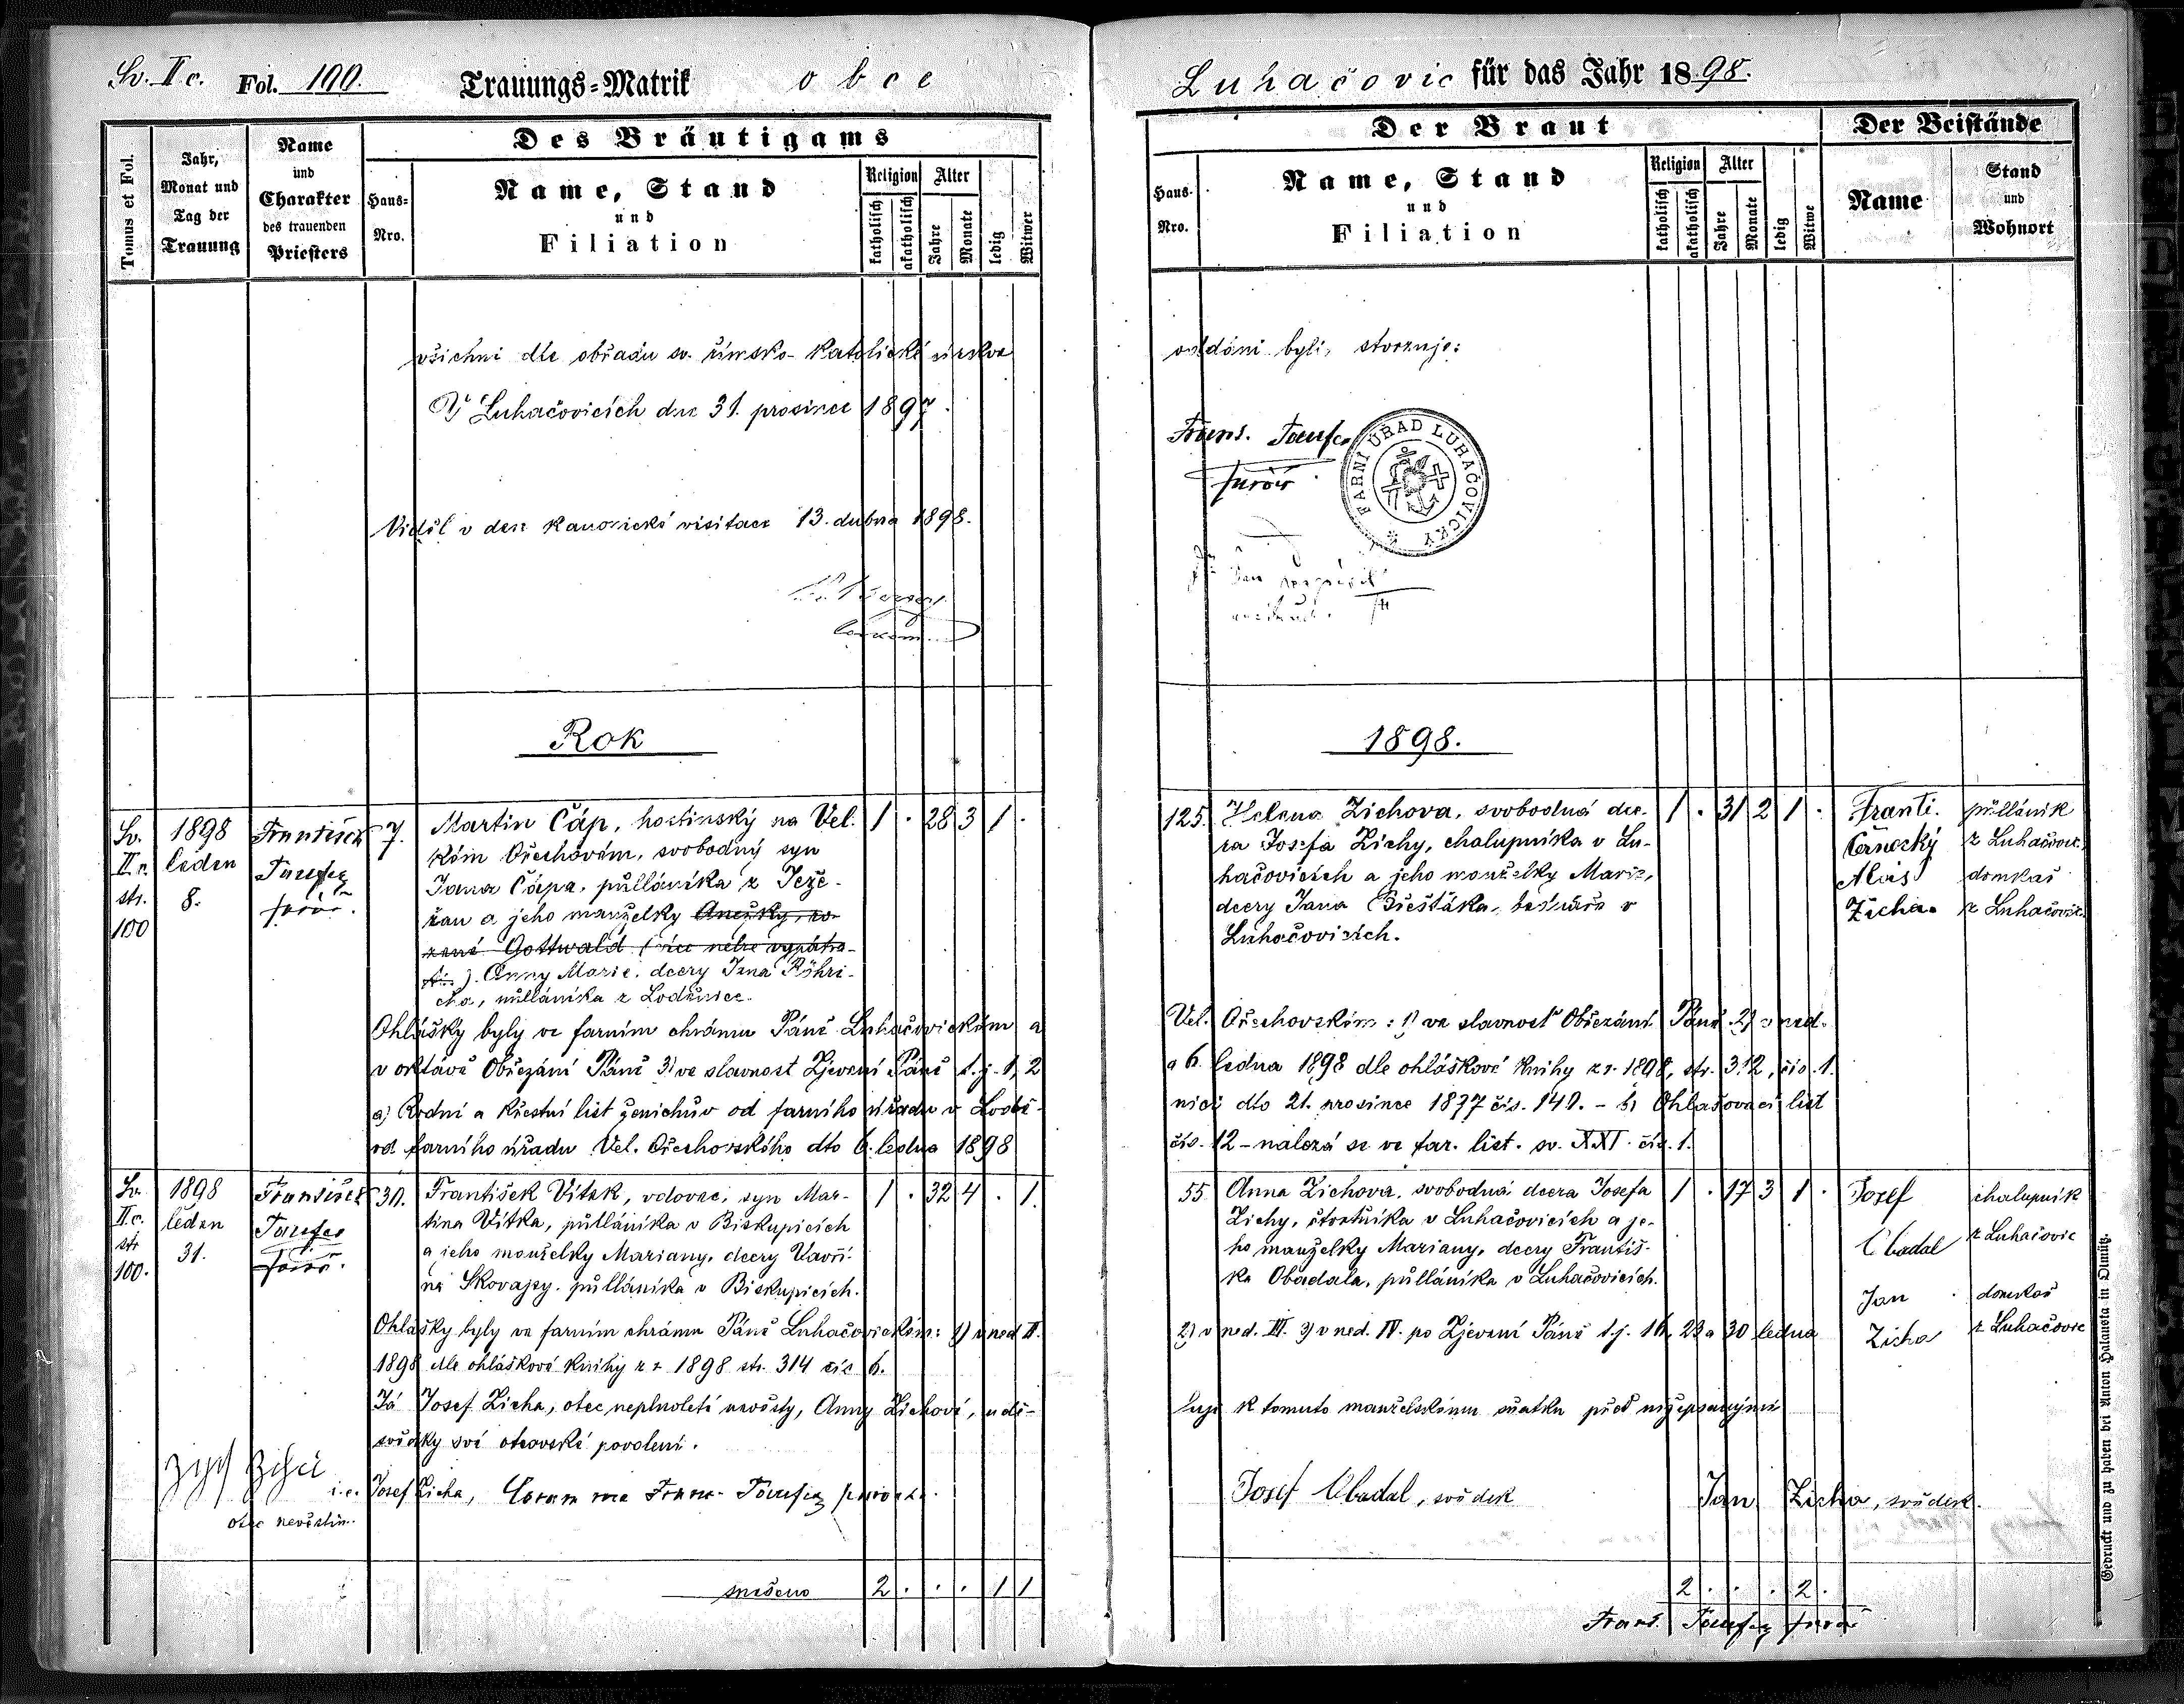 Sv. II c. Fol. 100. Trauungs-Matrik obce
Luhačovic für das Jahr 1898.
Tomus et Fol.
Jahr, Monat und Tag der Trauung
Name und Charakter des trauenden Priesters
Des Bräutigams
Haus-Nro.
Name, Stand und Filiation
Religion
katholisch
akatholisch
Alter
Jahre
Monate
ledig
Witwer
Der Braut
Haus-Nro.
Name, Stand und Filiation
Religion
katholisch
akatholisch
Alter
Jahre
Monate
ledig
Witwe
Der Beistände
Name
Stand und Wohnort
všichni dle obřadu sv. římsko-katolické církve oddáni byli, stvrzuje:
V Luhačovicích dne 31. prosince 1897.
Franc. Toufer
farář
FARNÍ ÚŘAD LUHAČOVICKÝ
Viděl v den kanonické visitace 13. dubna 1898.
Rok 1898.
Sv. II c. str. 100
1898 leden 8.
František Toufer farář.
7.
Martin Čáp, hostinský na Vel.
kém Ořechovém, svobodný syn
Jana Čápa, půlláníka z Jeze-
řan a jeho manželky Anežky, ro-
zené Gottwald (více nelze vypátra-
ti). Anny Marie, dcery Jana Röhri-
cha, půlláníka z Loděnice.
1 . 28 3 1 .
125.
Helena Zichova, svobodná dce-
ra Josefa Zichy, chalupníka v Lu-
hačovicích a jeho manželky Marie,
dcery Jana Břešťáka, bednáře v
Luhačovicích.
1 . 31 2 1 .
Franti. Černocký
půlláník z Luhačovic
Alois Zicha
domkař z Luhačovic
Ohlášky byly ve farním chrámu Páně Luhačovickém a Vel. Ořechovském: 1) ve slavnost Obřezání Páně 2) v ned.
v oktávě Obřezání Páně 3) ve slavnost Zjevení Páně t. j. 1, 2 a 6. ledna 1898 dle ohláškové knihy z r. 1898, str. 312, čís. 1.
a) Rodní a křestní list ženichův od farního úřadu v Lodě-nici dto 21. prosince 1877 čís. 140. - b) Ohlašovací list
od farního úřadu Vel. Ořechovského dto 6. ledna 1898 čís. 12 - nalezá se ve far. list. sv. XXI. čís. 1.
Sv. II c. str. 100.
1898 leden 31.
František Toufer farář.
30.
František Vítek, vdovec, syn Mar-
tina Vítka, půlláníka v Biskupicích
a jeho manželky Mariany, dcery Vavři-
na Skovajsy, půlláníka v Biskupicích.
1 . 32 4 . 1.
55
Anna Zichova, svobodná dcera Josefa
Zichy, čtvrtníka v Luhačovicích a je-
ho manželky Mariany, dcery Františ-
ka Obadala, půlláníka v Luhačovicích.
1 . 17 3 1 .
Josef Obadal
chalupník z Luhačovic
Jan Zicha
domkař z Luhačovic
Ohlášky byly ve farním chrámu Páně Luhačovickém: 1) v ned. II. 2) v ned. III. 3) v ned. IV. po Zjevení Páně t. j. 16, 23 a 30 ledna
1898 dle ohláškové knihy z r. 1898 str. 314 čís. 6.
Já Josef Zicha, otec neplnoleté nevěsty, Anny Zichové, udě-luji k tomuto manželskému sňatku před nížepsanými
svědky své otcovské povolení.
i. e. Josef Zicha, Coram me Franc. Toufer, farář.
otec nevěstin.
Josef Obadal, svědek
Jan Zicha, svědek.
snešeno 2 . . . 1 1
2 . . . 2 .
Franc. Toufer farář
Gedruckt und zu haben bei Anton Halauska in Olmütz.